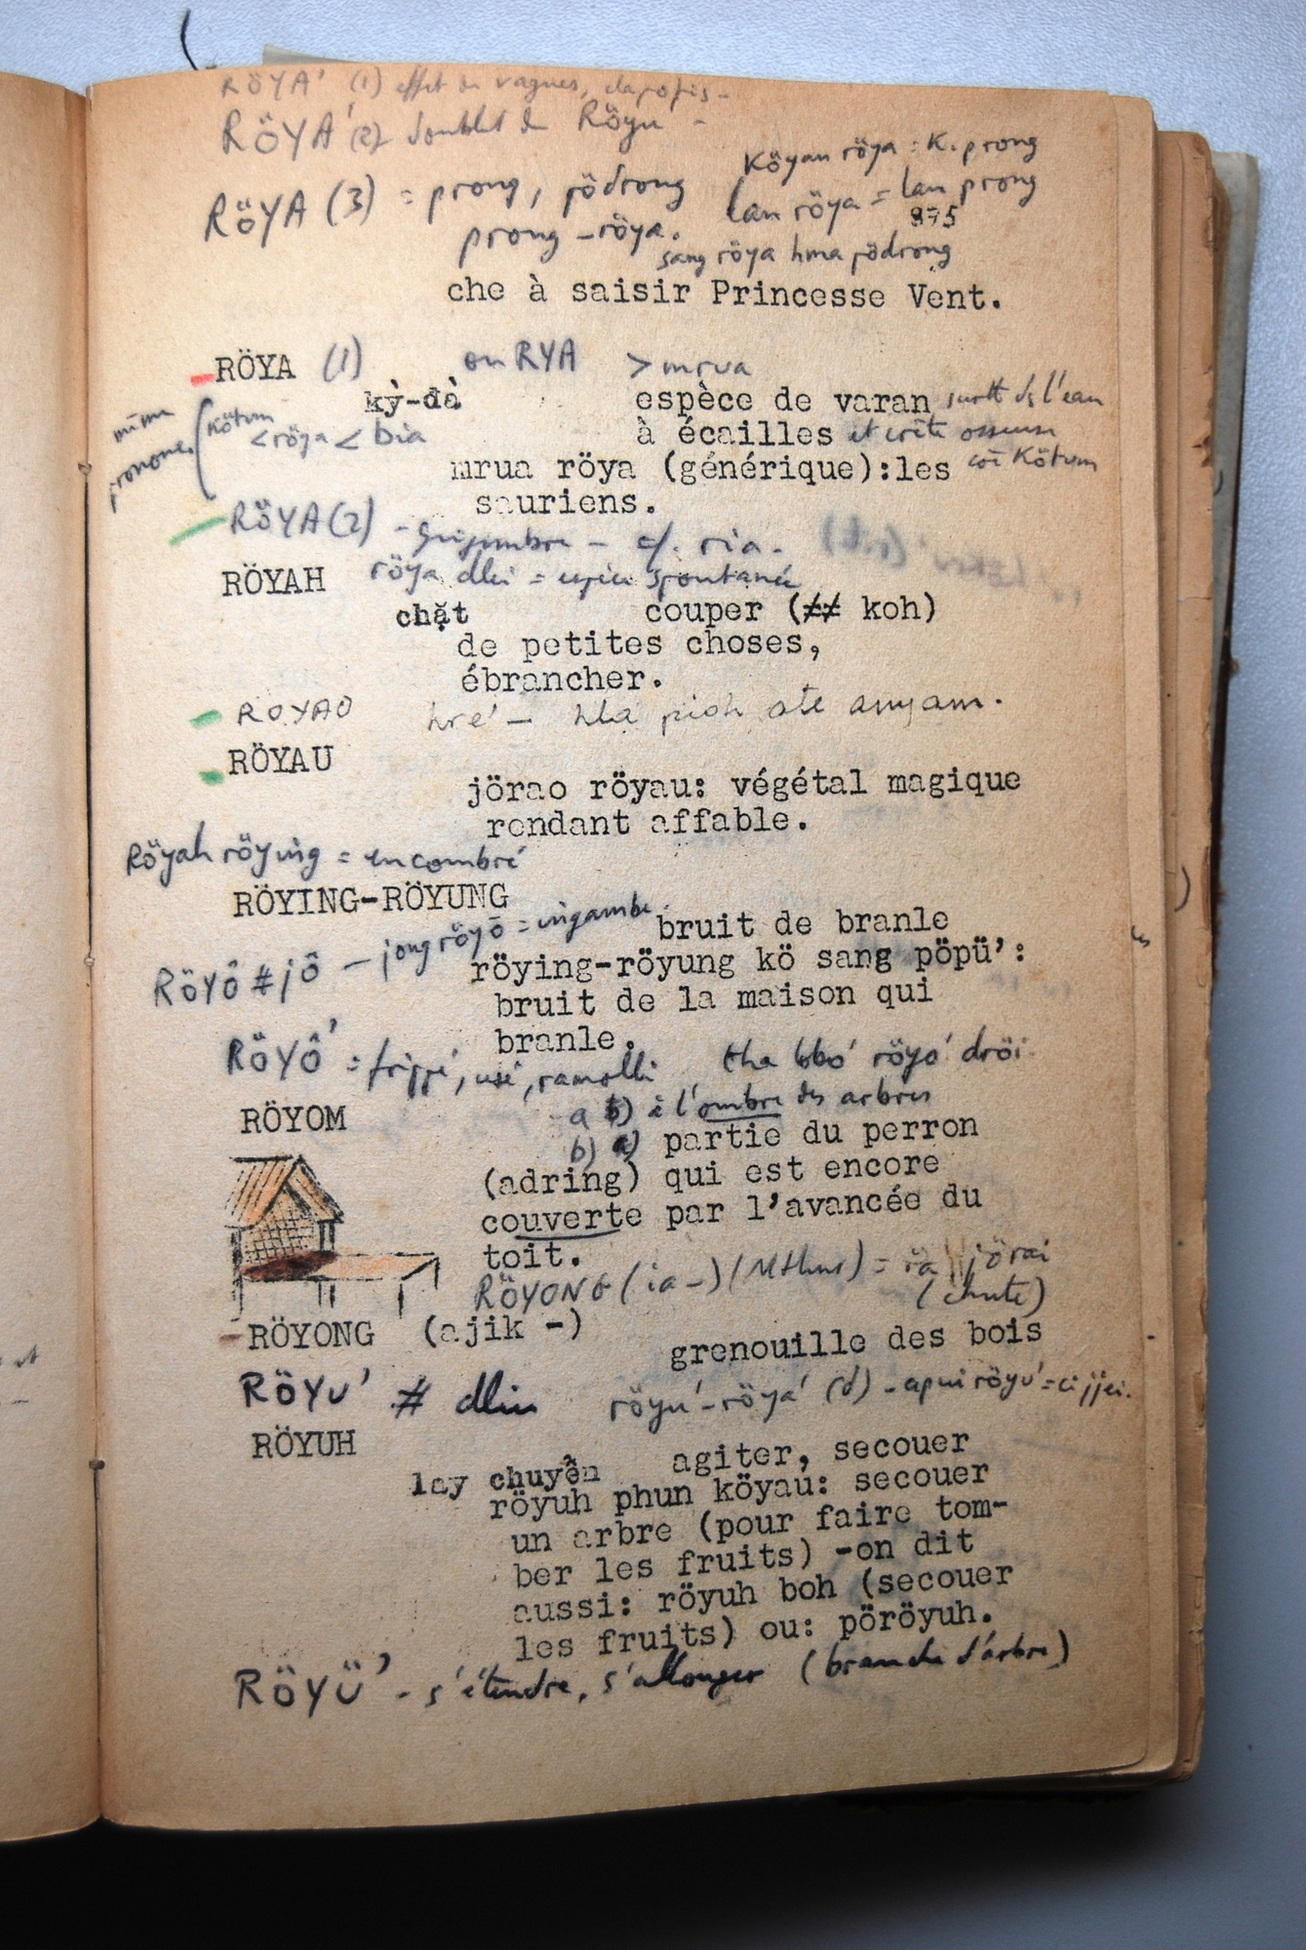 RÖYA' (1) effet de vagues, clapotis -
RÖYA' (2) doublet de Röyu' -
Köyau röya : K. prong
RÖYA (3) = prong, pödrong
lan röya = lan prong
prong - röya.
975
sang röya hma pödrong
che à saisir Princesse Vent.
RÖYA (1) ou RYA > mrua
kỳ-đà espèce de varan surtt ds l'eau
à écailles et crête osseuse
Kötum < röya < bia
mrua röya (générique):les Kötum
sauriens.
RÖYA (2) - gingembre - cf. ria.
röya dlei = espèce spontanée
RÖYAH
chặt couper (≠≠ koh)
de petites choses,
ébrancher.
ROYAO hré' - hla pioh ate anyam.
RÖYAU
jörao röyau: végétal magique
rendant affable.
Röyah röying = encombré
RÖYING-RÖYUNG
bruit de branle
röying-röyung kö sang pöpü':
bruit de la maison qui
branle.
RÖYÔ # jô - jong röyô = ingambe.
RÖYÔ' = frippé, usé, ramolli tha bbo' röyo' dröi
RÖYOM
a b) à l'ombre des arbres
b) a) partie du perron
(adring) qui est encore
couverte par l'avancée du
toit.
RÖYONG (ia -) = ia jörai
(chute)
RÖYONG (ajik -)
grenouille des bois
RÖYU' # dliu röyu'-röya' (d) - apui röyu' =
RÖYUH
lay chuyển agiter, secouer
röyuh phun köyau: secouer
un arbre (pour faire tom-
ber les fruits) -on dit
aussi: röyuh boh (secouer
les fruits) ou: pöröyuh.
RÖYÜ' - s'étendre, s'allonger (branche d'arbre)